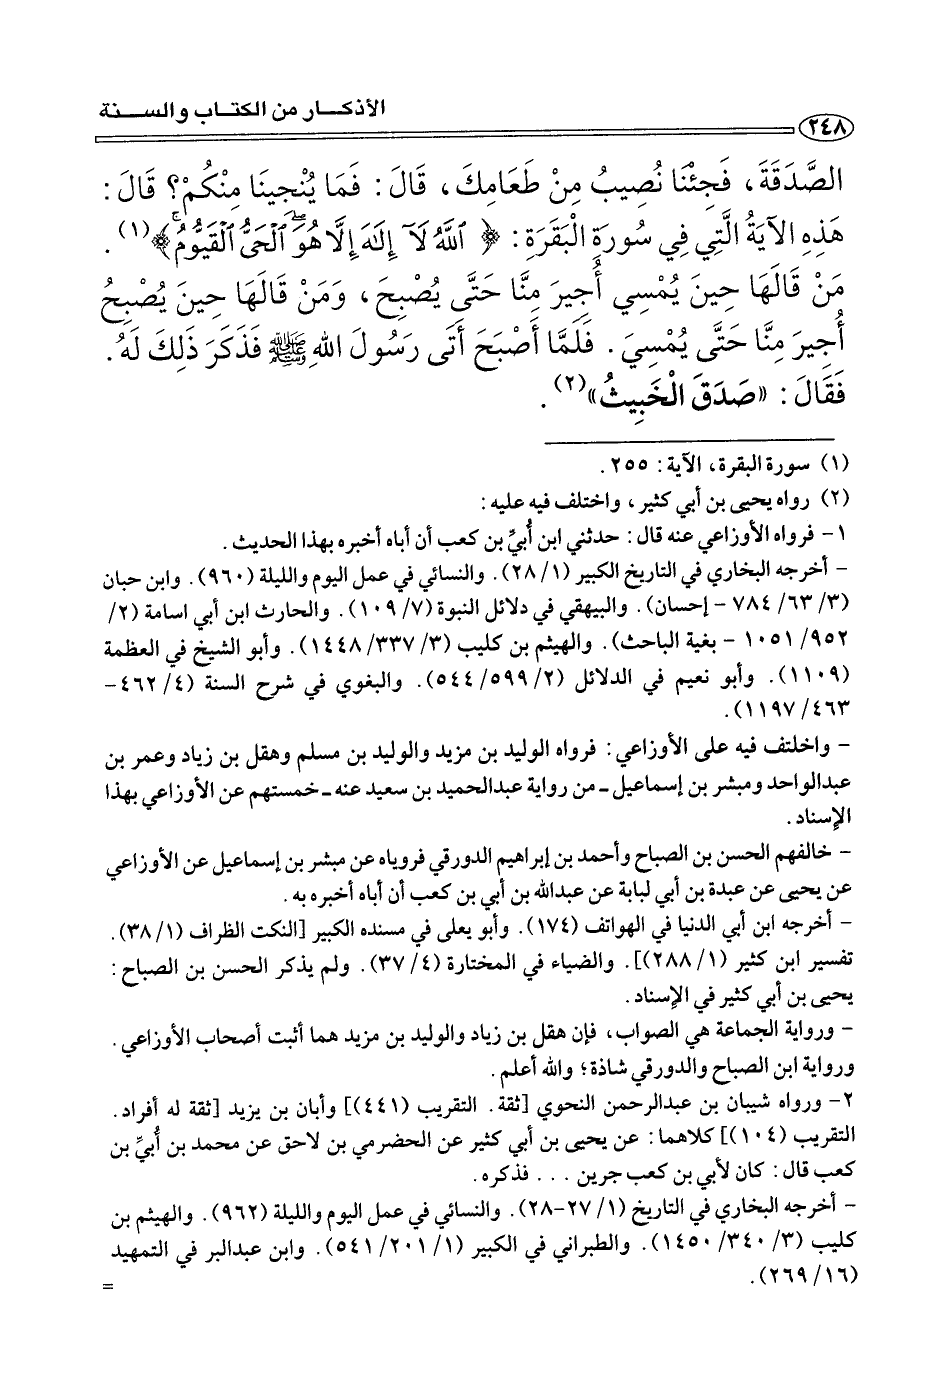 الأذكــار من الكتــاب والســنة
٢٤٨
الصَّدَقَةَ، فَجِئْنَا نُصِيبُ مِنْ طَعَامِكَ، قَالَ: فَمَا يُنْجِينَا مِنْكُمْ؟ قَالَ:
هَذِهِ الآيَةُ الَّتِي فِي سُورَةِ الْبَقَرَةِ: ﴿ اللَّهُ لَآ إِلَٰهَ إِلَّا هُوَ الْحَيُّ الْقَيُّومُ ﴾(١).
مَنْ قَالَهَا حِينَ يُمْسِي أُجِيرَ مِنَّا حَتَّى يُصْبِحَ، وَمَنْ قَالَهَا حِينَ يُصْبِحُ
أُجِيرَ مِنَّا حَتَّى يُمْسِيَ. فَلَمَّا أَصْبَحَ أَتَى رَسُولَ اللهِ ﷺ فَذَكَرَ ذَلِكَ لَهُ.
فَقَالَ: «صَدَقَ الْخَبِيثُ»(٢).
(١) سورة البقرة، الآية: ٢٥٥.
(٢) رواه يحيى بن أبي كثير، واختلف فيه عليه:
١- فرواه الأوزاعي عنه قال: حدثني ابن أُبيِّ بن كعب أن أباه أخبره بهذا الحديث.
- أخرجه البخاري في التاريخ الكبير (١/ ٢٨). والنسائي في عمل اليوم والليلة (٩٦٠). وابن حبان
(٣/ ٦٣/ ٧٨٤ - إحسان). والبيهقي في دلائل النبوة (٧/ ١٠٩). والحارث ابن أبي اسامة (٢/
٩٥٢/ ١٠٥١ - بغية الباحث). والهيثم بن كليب (٣/ ٣٣٧/ ١٤٤٨). وأبو الشيخ في العظمة
(١١٠٩). وأبو نعيم في الدلائل (٢/ ٥٩٩/ ٥٤٤). والبغوي في شرح السنة (٤/ ٤٦٢-
٤٦٣/ ١١٩٧).
- واختلف فيه على الأوزاعي: فرواه الوليد بن مزيد والوليد بن مسلم وهقل بن زياد وعمر بن
عبدالواحد ومبشر بن إسماعيل - من رواية عبدالحميد بن سعيد عنه - خمستهم عن الأوزاعي بهذا
الإسناد.
- خالفهم الحسن بن الصباح وأحمد بن إبراهيم الدورقي فروياه عن مبشر بن إسماعيل عن الأوزاعي
عن يحيى عن عبدة بن أبي لبابة عن عبدالله بن أبي بن كعب أن أباه أخبره به.
- أخرجه ابن أبي الدنيا في الهواتف (١٧٤). وأبو يعلى في مسنده الكبير [النكت الظراف (١/ ٣٨).
تفسير ابن كثير (١/ ٢٨٨)]. والضياء في المختارة (٤/ ٣٧). ولم يذكر الحسن بن الصباح:
يحيى بن أبي كثير في الإسناد.
- ورواية الجماعة هي الصواب، فإن هقل بن زياد والوليد بن مزيد هما أثبت أصحاب الأوزاعي.
ورواية ابن الصباح والدورقي شاذة؛ والله أعلم.
٢- ورواه شيبان بن عبدالرحمن النحوي [ثقة. التقريب (٤٤١)] وأبان بن يزيد [ثقة له أفراد.
التقريب (١٠٤)] كلاهما: عن يحيى بن أبي كثير عن الحضرمي بن لاحق عن محمد بن أُبيِّ بن
كعب قال: كان لأبي بن كعب جرين ... فذكره.
- أخرجه البخاري في التاريخ (١/ ٢٧-٢٨). والنسائي في عمل اليوم والليلة (٩٦٢). والهيثم بن
كليب (٣/ ٣٤٠/ ١٤٥٠). والطبراني في الكبير (١/ ٢٠١/ ٥٤١). وابن عبدالبر في التمهيد
(١٦/ ٢٦٩).
=